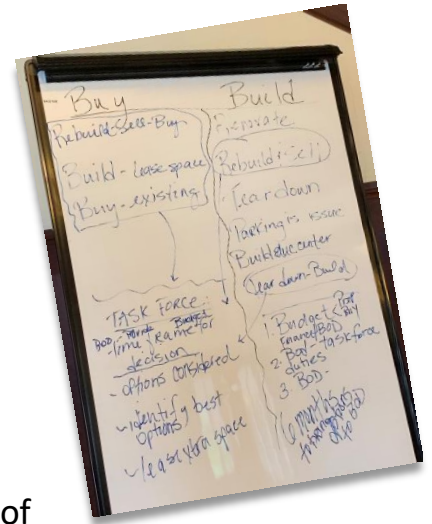 Buy
Rebuild-Sell-Buy
Build - lease space
Buy - existing
TASK FORCE:
BOD - Budget
-Time frame for
decision
- options considered
- identify best
options
- lease xtra space
Build
Renovate
Rebuild
Tear down
Parking is issue
Build educenter
Tear down - Build
1. Budget
Finance/BOD
2. BOD - taskforce
duties
3. BOD -
6 months
to BOD
of